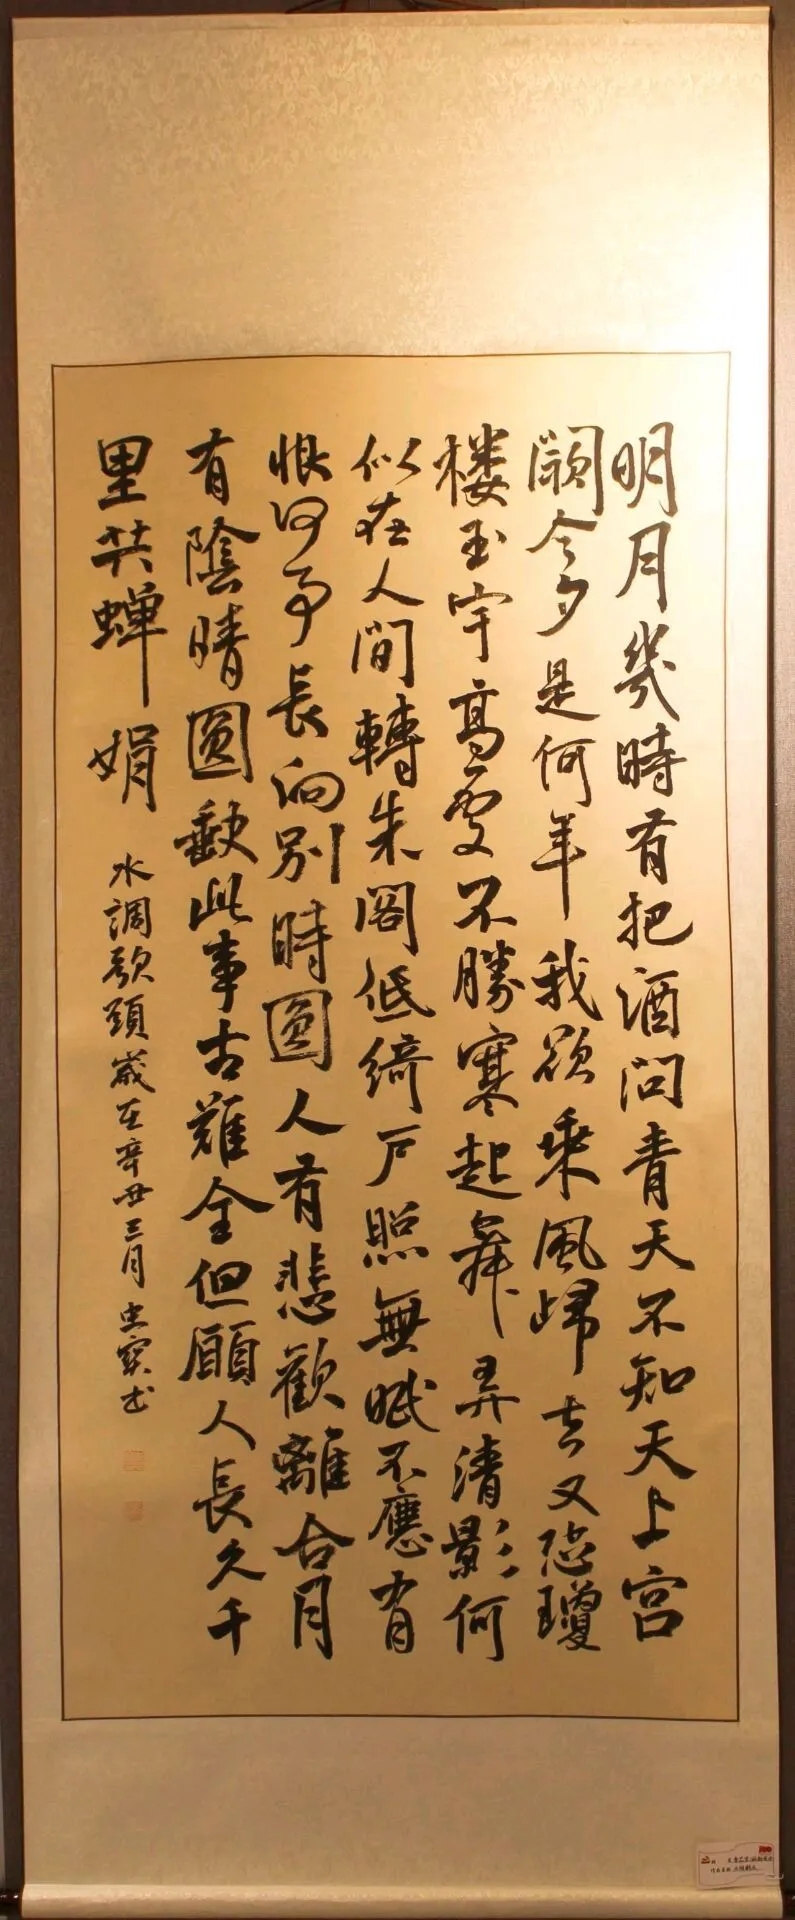 明月幾時有把酒問青天不知天上宮
闕今夕是何年我欲乘風歸去又恐瓊
楼玉宇高處不勝寒起舞弄清影何
似在人間轉朱閣低綺戶照無眠不應有
恨何事長向別時圓人有悲歡離合月
有陰晴圓缺此事古難全但願人長久千
里共蟬娟
水調歌頭歲在辛丑三月忠實书